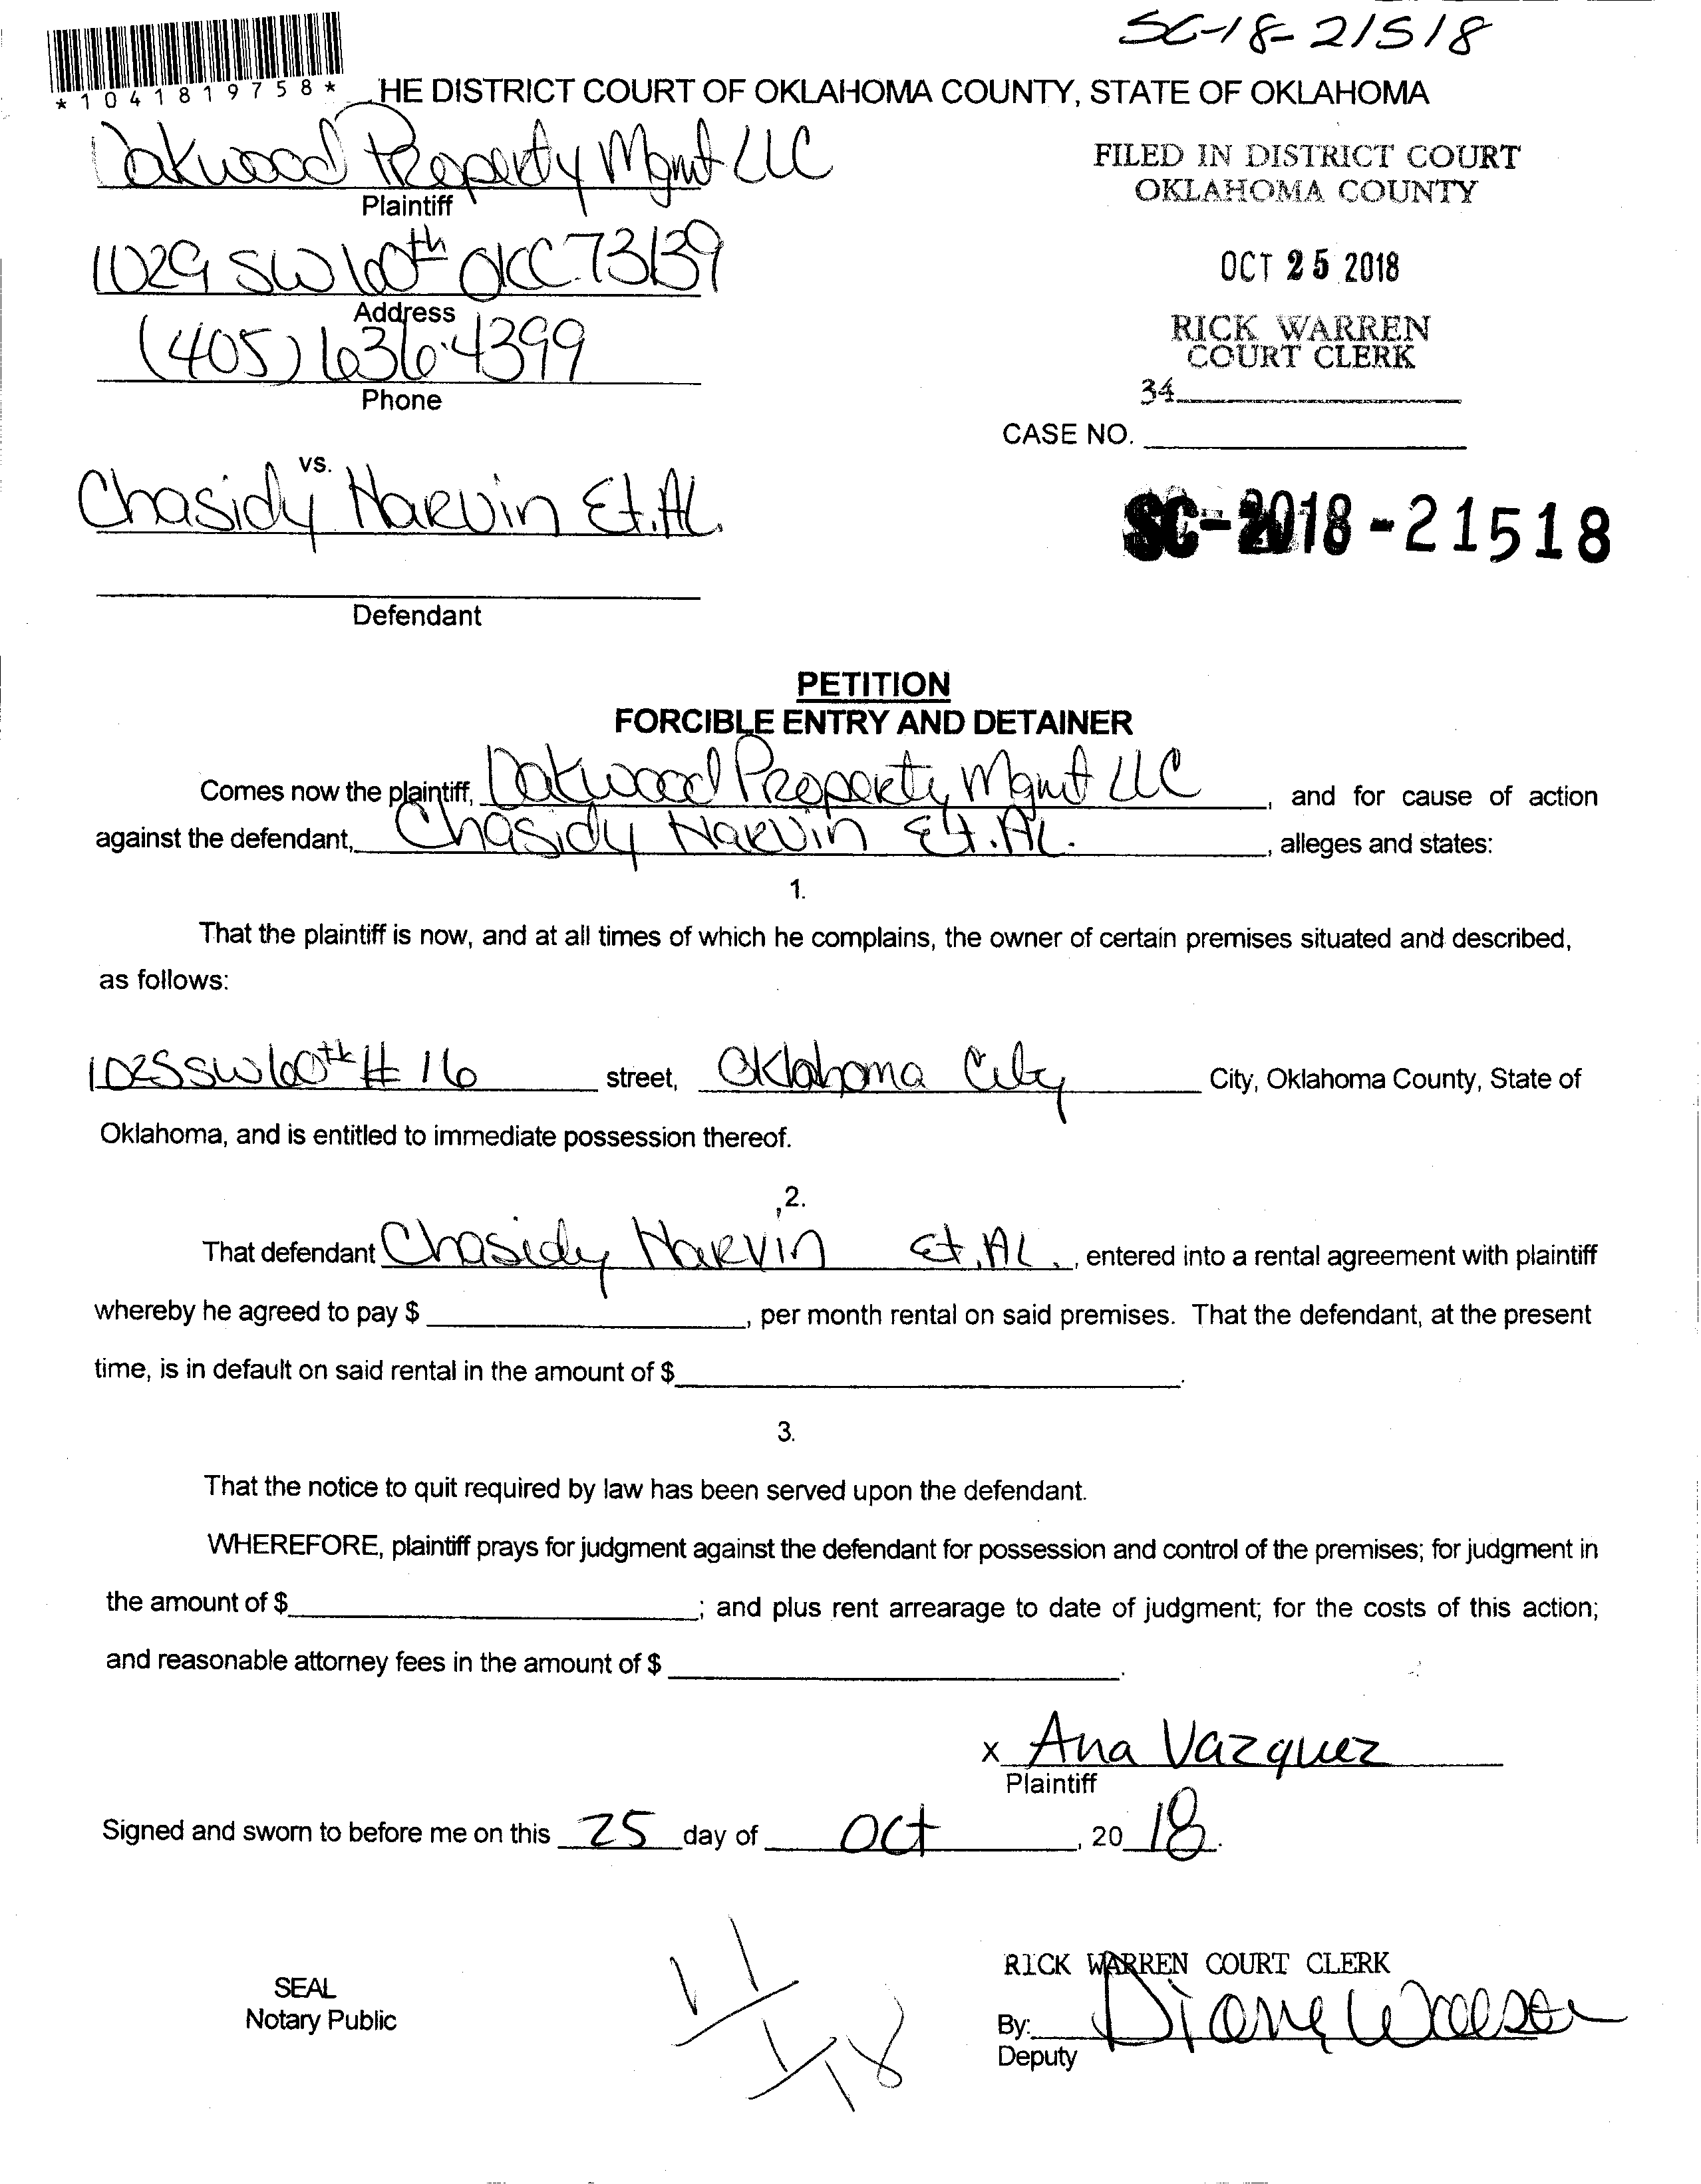 SC-18-21518
*1041819758*
HE DISTRICT COURT OF OKLAHOMA COUNTY, STATE OF OKLAHOMA
Oakwood Property Mgmt LLC
Plaintiff
1029 SW 60th OKC 73139
Address
(405) 636-4399
Phone
FILED IN DISTRICT COURT
OKLAHOMA COUNTY
OCT 25 2018
RICK WARREN
COURT CLERK
34
CASE NO.
SC-2018-21518
vs.
Chasidy Harvin Et.AL.
Defendant
PETITION
FORCIBLE ENTRY AND DETAINER
Comes now the plaintiff, Oakwood Property Mgmt LLC, and for cause of action
against the defendant, Chasidy Harvin Et.AL., alleges and states:
1.
That the plaintiff is now, and at all times of which he complains, the owner of certain premises situated and described,
as follows:
1025 SW 60th # 16 street, Oklahoma City City, Oklahoma County, State of
Oklahoma, and is entitled to immediate possession thereof.
2.
That defendant Chasidy Harvin Et.AL., entered into a rental agreement with plaintiff
whereby he agreed to pay $ , per month rental on said premises. That the defendant, at the present
time, is in default on said rental in the amount of $ .
3.
That the notice to quit required by law has been served upon the defendant.
WHEREFORE, plaintiff prays for judgment against the defendant for possession and control of the premises; for judgment in
the amount of $ ; and plus rent arrearage to date of judgment; for the costs of this action;
and reasonable attorney fees in the amount of $ .
x Ana Vazquez
Plaintiff
Signed and sworn to before me on this 25 day of Oct, 20 18.
SEAL
Notary Public
11/1/18
RICK WARREN COURT CLERK
By: Diane
Deputy